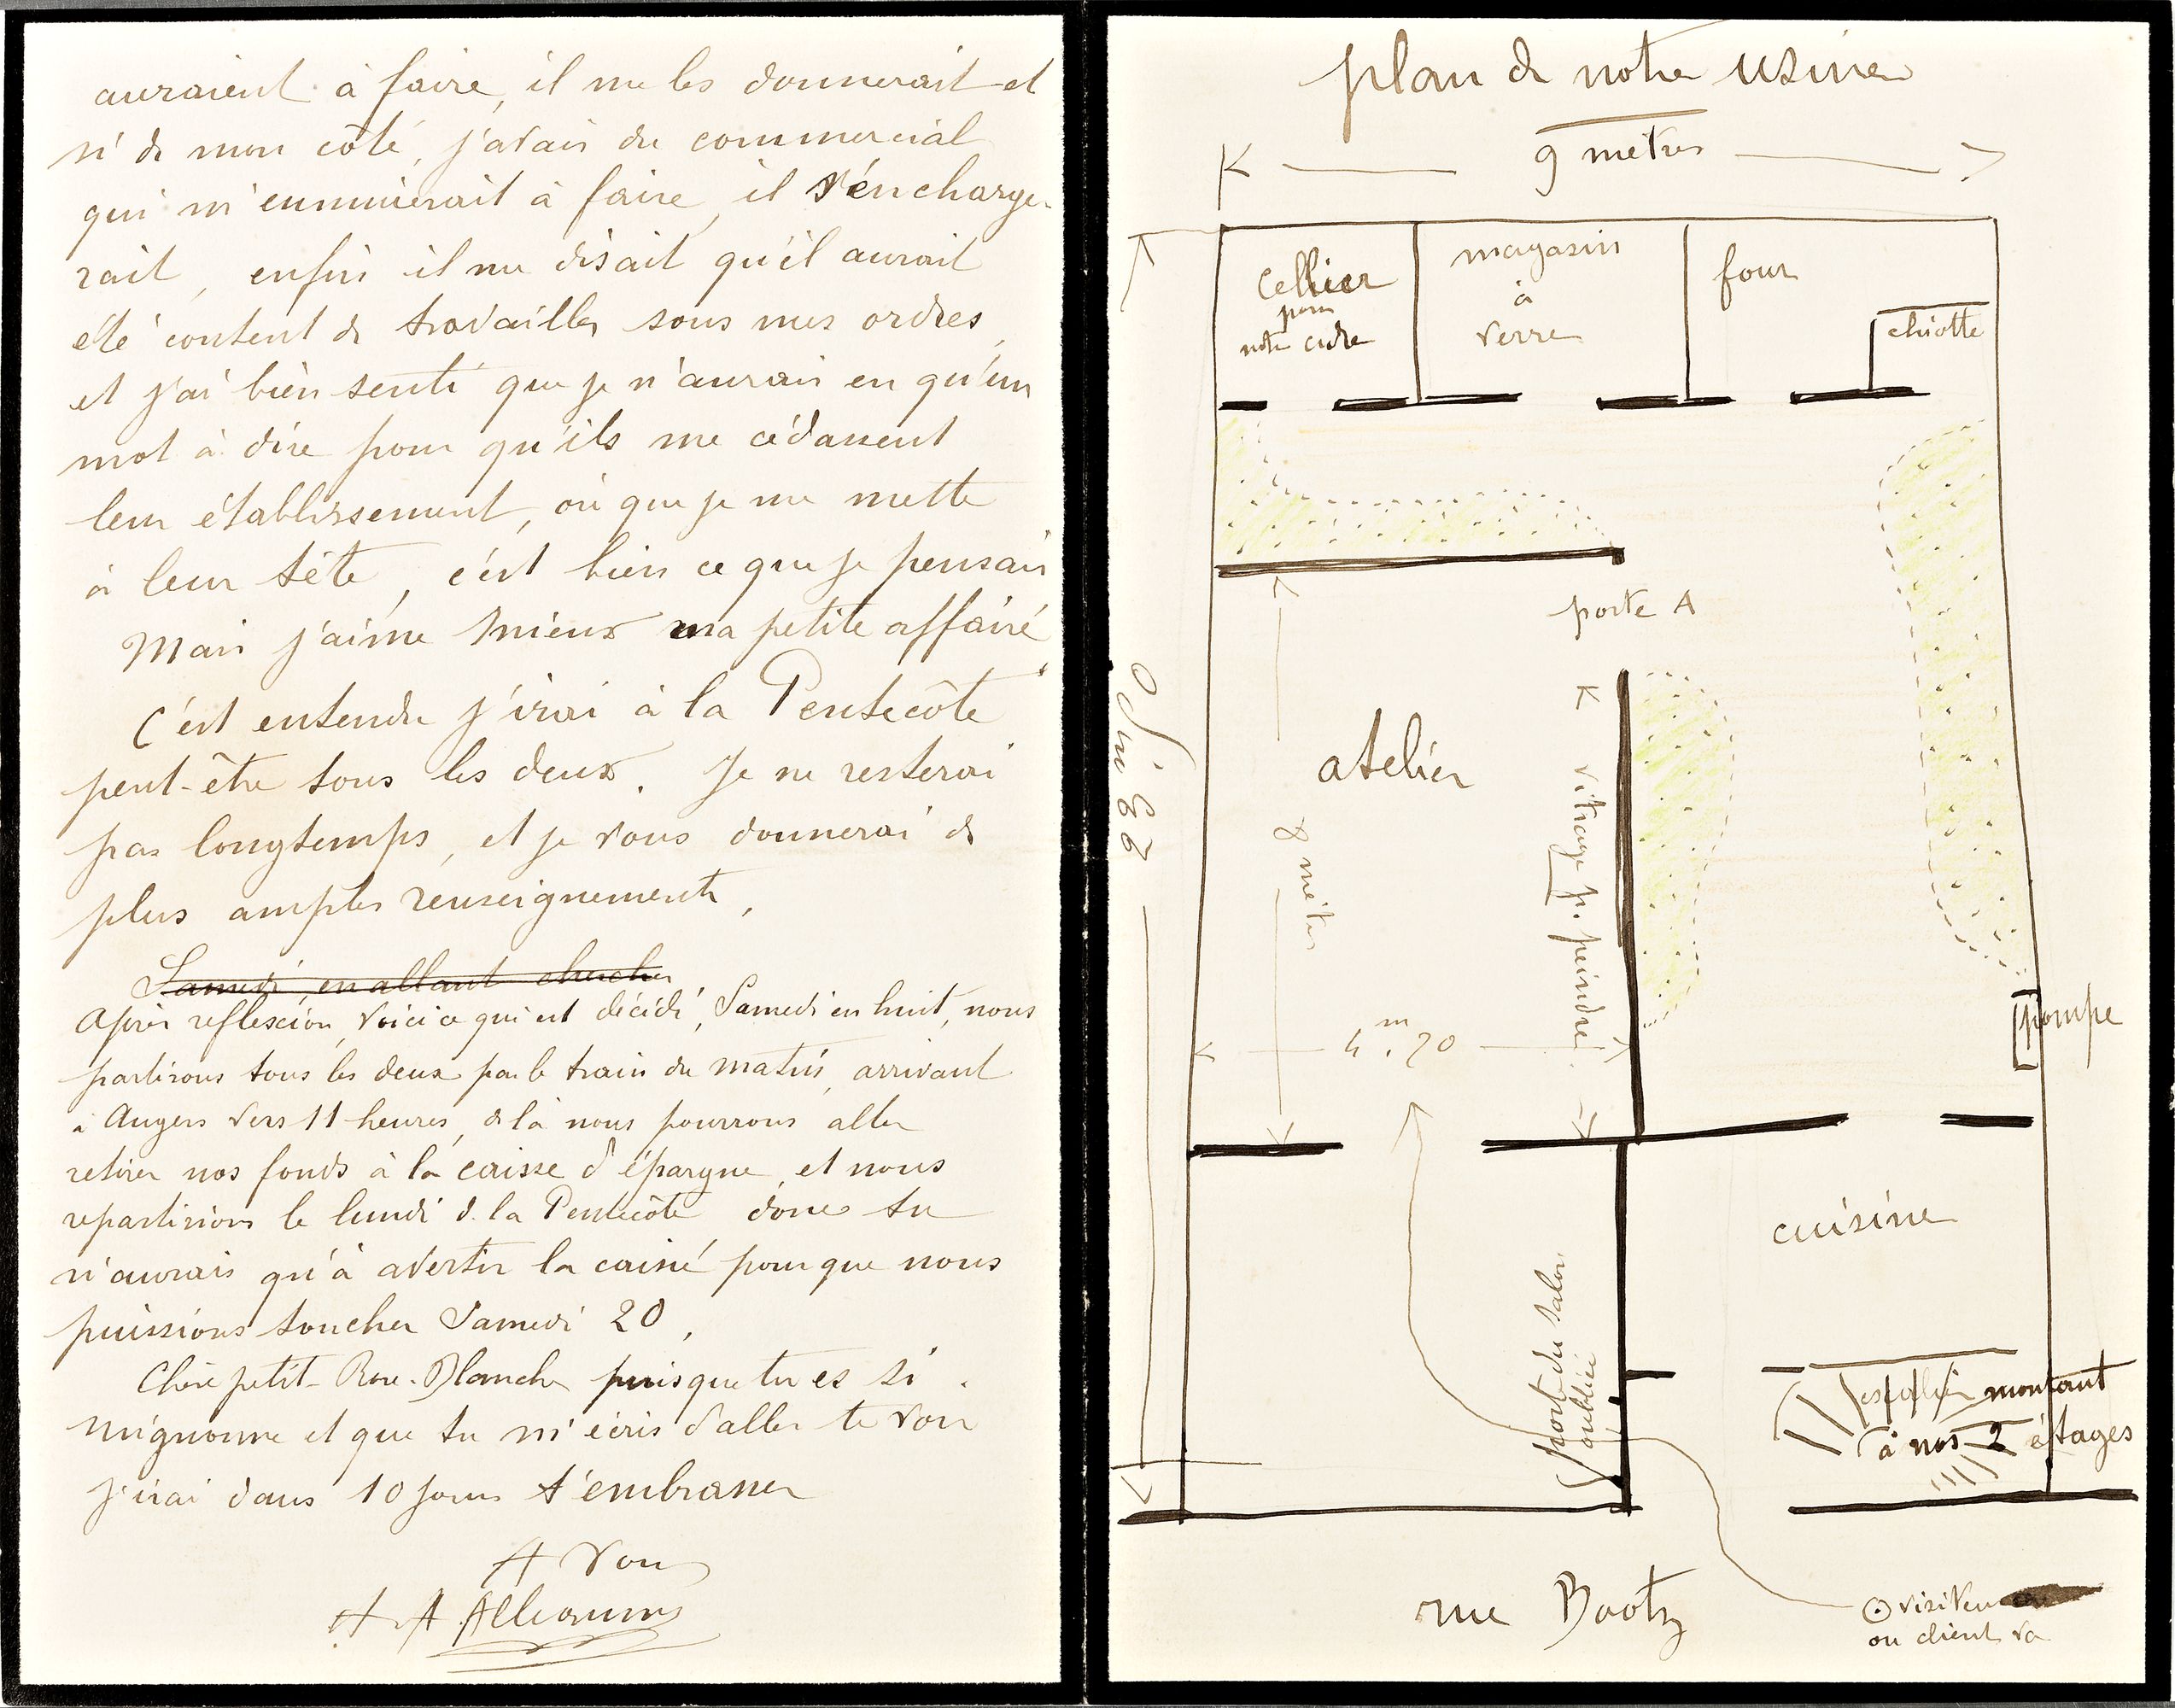 auraient à faire, il me les donnerait et
si de mon côté, j'avais du commercial
qui m'ennuierait à faire, il s'en charge-
rait, enfin il me disait qu'il aurait
été content de travailler sous mes ordres,
et j'ai bien senti que je n'aurais eu qu'un
mot à dire pour qu'ils me cédassent
leur établissement, ou que je me mette
à leur tête, c'est bien ce que je pensais
Mais j'aime mieux ma petite affaire
C'est entendu j'irai à la Pentecôte
peut-être tous les deux. Je ne resterai
pas longtemps, et je vous donnerai de
plus amples renseignements,
Samedi, en allant chercher
Après reflexion, voici ce qui est décidé, Samedi en huit, nous
partirons tous les deux par le train du matin, arrivant
à Angers vers 11 heures, de là nous pourrons aller
retirer nos fonds à la caisse d'épargne, et nous
repartirions le lundi d. la Pentecôte donc tu
n'aurais qu'à avertir la caisse pour que nous
puissions toucher Samedi 20,
Chère petit- Rose-Blanche puisque tu es si
mignonne et que tu m'écris d'aller te voir
j'irai dans 10 jours t'embrasser
A Vous
A A Alleaume
plan de notre usine
9 mètres
Cellier
pour
notre cidre
magasin
à
verre
four
chiotte
porte A
atelier
8 mètres
vitrage p. peindre
pompe
4 m. 70
cuisine
porte du salon
oubliée
escalier montant
à nos 2 étages
rue Bootz
visiteur
ou client va